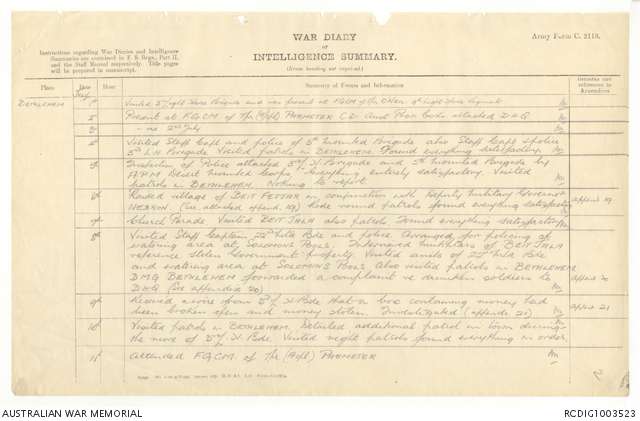 WAR DIARY
or
INTELLIGENCE SUMMARY.
(Erase heading not required).
Army Form C. 2118.
Instructions regarding War Diaries and Intelligence
Summaries are contained in F. S. Regs., Part II,
and the Staff Manual respectively. Title pages
will be prepared in manuscript.
Place Date Hour Summary of Events and Information Remarks and references to Appendices
BETHLEHEM July 1st Visited 3rd Light Horse Brigade and was present at FGCM of Light Horse Regiment
2nd Present at FGCM of attached DHQ
3rd - nil
4th Visited Staff Capt and police of 5th Mounted Brigade also Staff Capt & police
3rd L H Brigade. Visited patrols in BETHLEHEM. Found everything satisfactory.
5th Inspection of Police attached 3rd L H Brigade and 5th Mounted Brigade by
APM Desert Mounted Corps. Everything entirely satisfactory. Visited
patrols in BETHLEHEM. Nothing to report
6th Raided village of BEIT FETTAR in conjunction with Deputy Military Governor
HEBRON (see attached append. 19) Rode round patrols found everything satisfactory append 19
7th Church Parade Visited BEIT JALA also patrols Found everything satisfactory
8th Visited Staff Captain 22nd Bde and police. Arranged for policing of
watering area at SOLOMONS POOLS. Interviewed Mukhtars of BEIT JALA
reference stolen Government property. Visited units of 22nd Bde
and watering area at SOLOMONS POOLS Also visited patrols in BETHLEHEM
DMG BETHLEHEM forwarded a complaint re drunken soldiers to
DHQ (see appendix 20) append 20
9th Received a wire from 3rd L H Bde that a box containing money had
been broken open and money stolen. Investigated (append 21) append 21
10th Visited patrols in BETHLEHEM. Detailed additional patrol in town during
the move of 3rd L H Bde. Visited night patrols found everything in order.
11th Attended FGCM of
AUSTRALIAN WAR MEMORIAL
RCDIG1003523